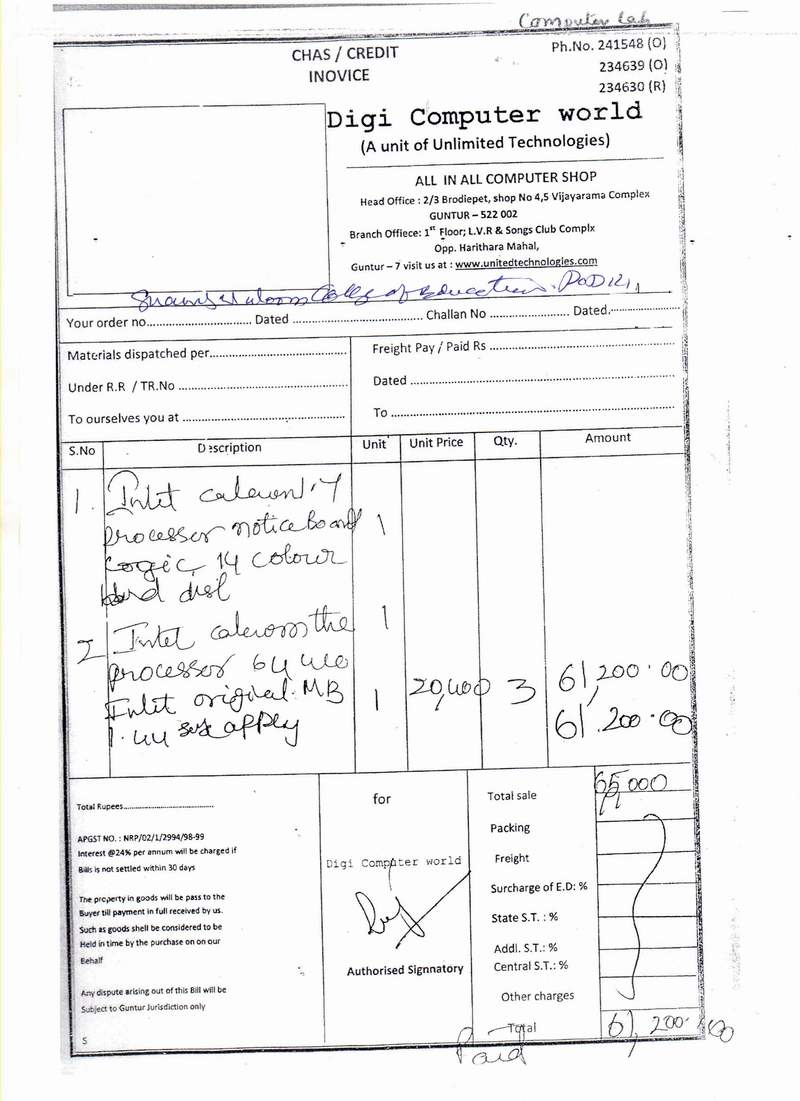 Computer Lab
CHAS / CREDIT
INOVICE
Ph.No. 241548 (O)
234639 (O)
234630 (R)
Digi Computer world
(A unit of Unlimited Technologies)
ALL IN ALL COMPUTER SHOP
Head Office : 2/3 Brodiepet, shop No 4,5 Vijayarama Complex
GUNTUR – 522 002
Branch Offiece: 1st Floor; L.V.R & Songs Club Complx
Opp. Harithara Mahal,
Guntur – 7 visit us at : www.unitedtechnologies.com
College of Education,
Your order no................ Dated ................ Challan No ................ Dated.................
Materials dispatched per................
Freight Pay / Paid Rs ................
Under R.R / TR.No ................
Dated ................
To ourselves you at ................
To ................
S.No Description Unit Unit Price Qty. Amount
1. Inlet
processor notice board 1
Logic, 14 colour
Hard disl
2 Intel the 1
processor 64
Inlet original MB 1 20,400 3 61,200.00
1.44 apply 61,200.00
Total Rupees................
APGST NO. : NRP/02/1/2994/98-99
Interest @24% per annum will be charged if
Bills is not settled within 30 days
The property in goods will be pass to the
Buyer till payment in full received by us.
Such as goods shell be considered to be
Held in time by the purchase on on our
Behalf
Any dispute arising out of this Bill will be
Subject to Guntur Jurisdiction only
S
for
Digi Computer world
Authorised Signnatory
Total sale 65,000
Packing
Freight
Surcharge of E.D: %
State S.T. : %
Addl. S.T.: %
Central S.T.: %
Other charges
Total 61,200.00
Paid